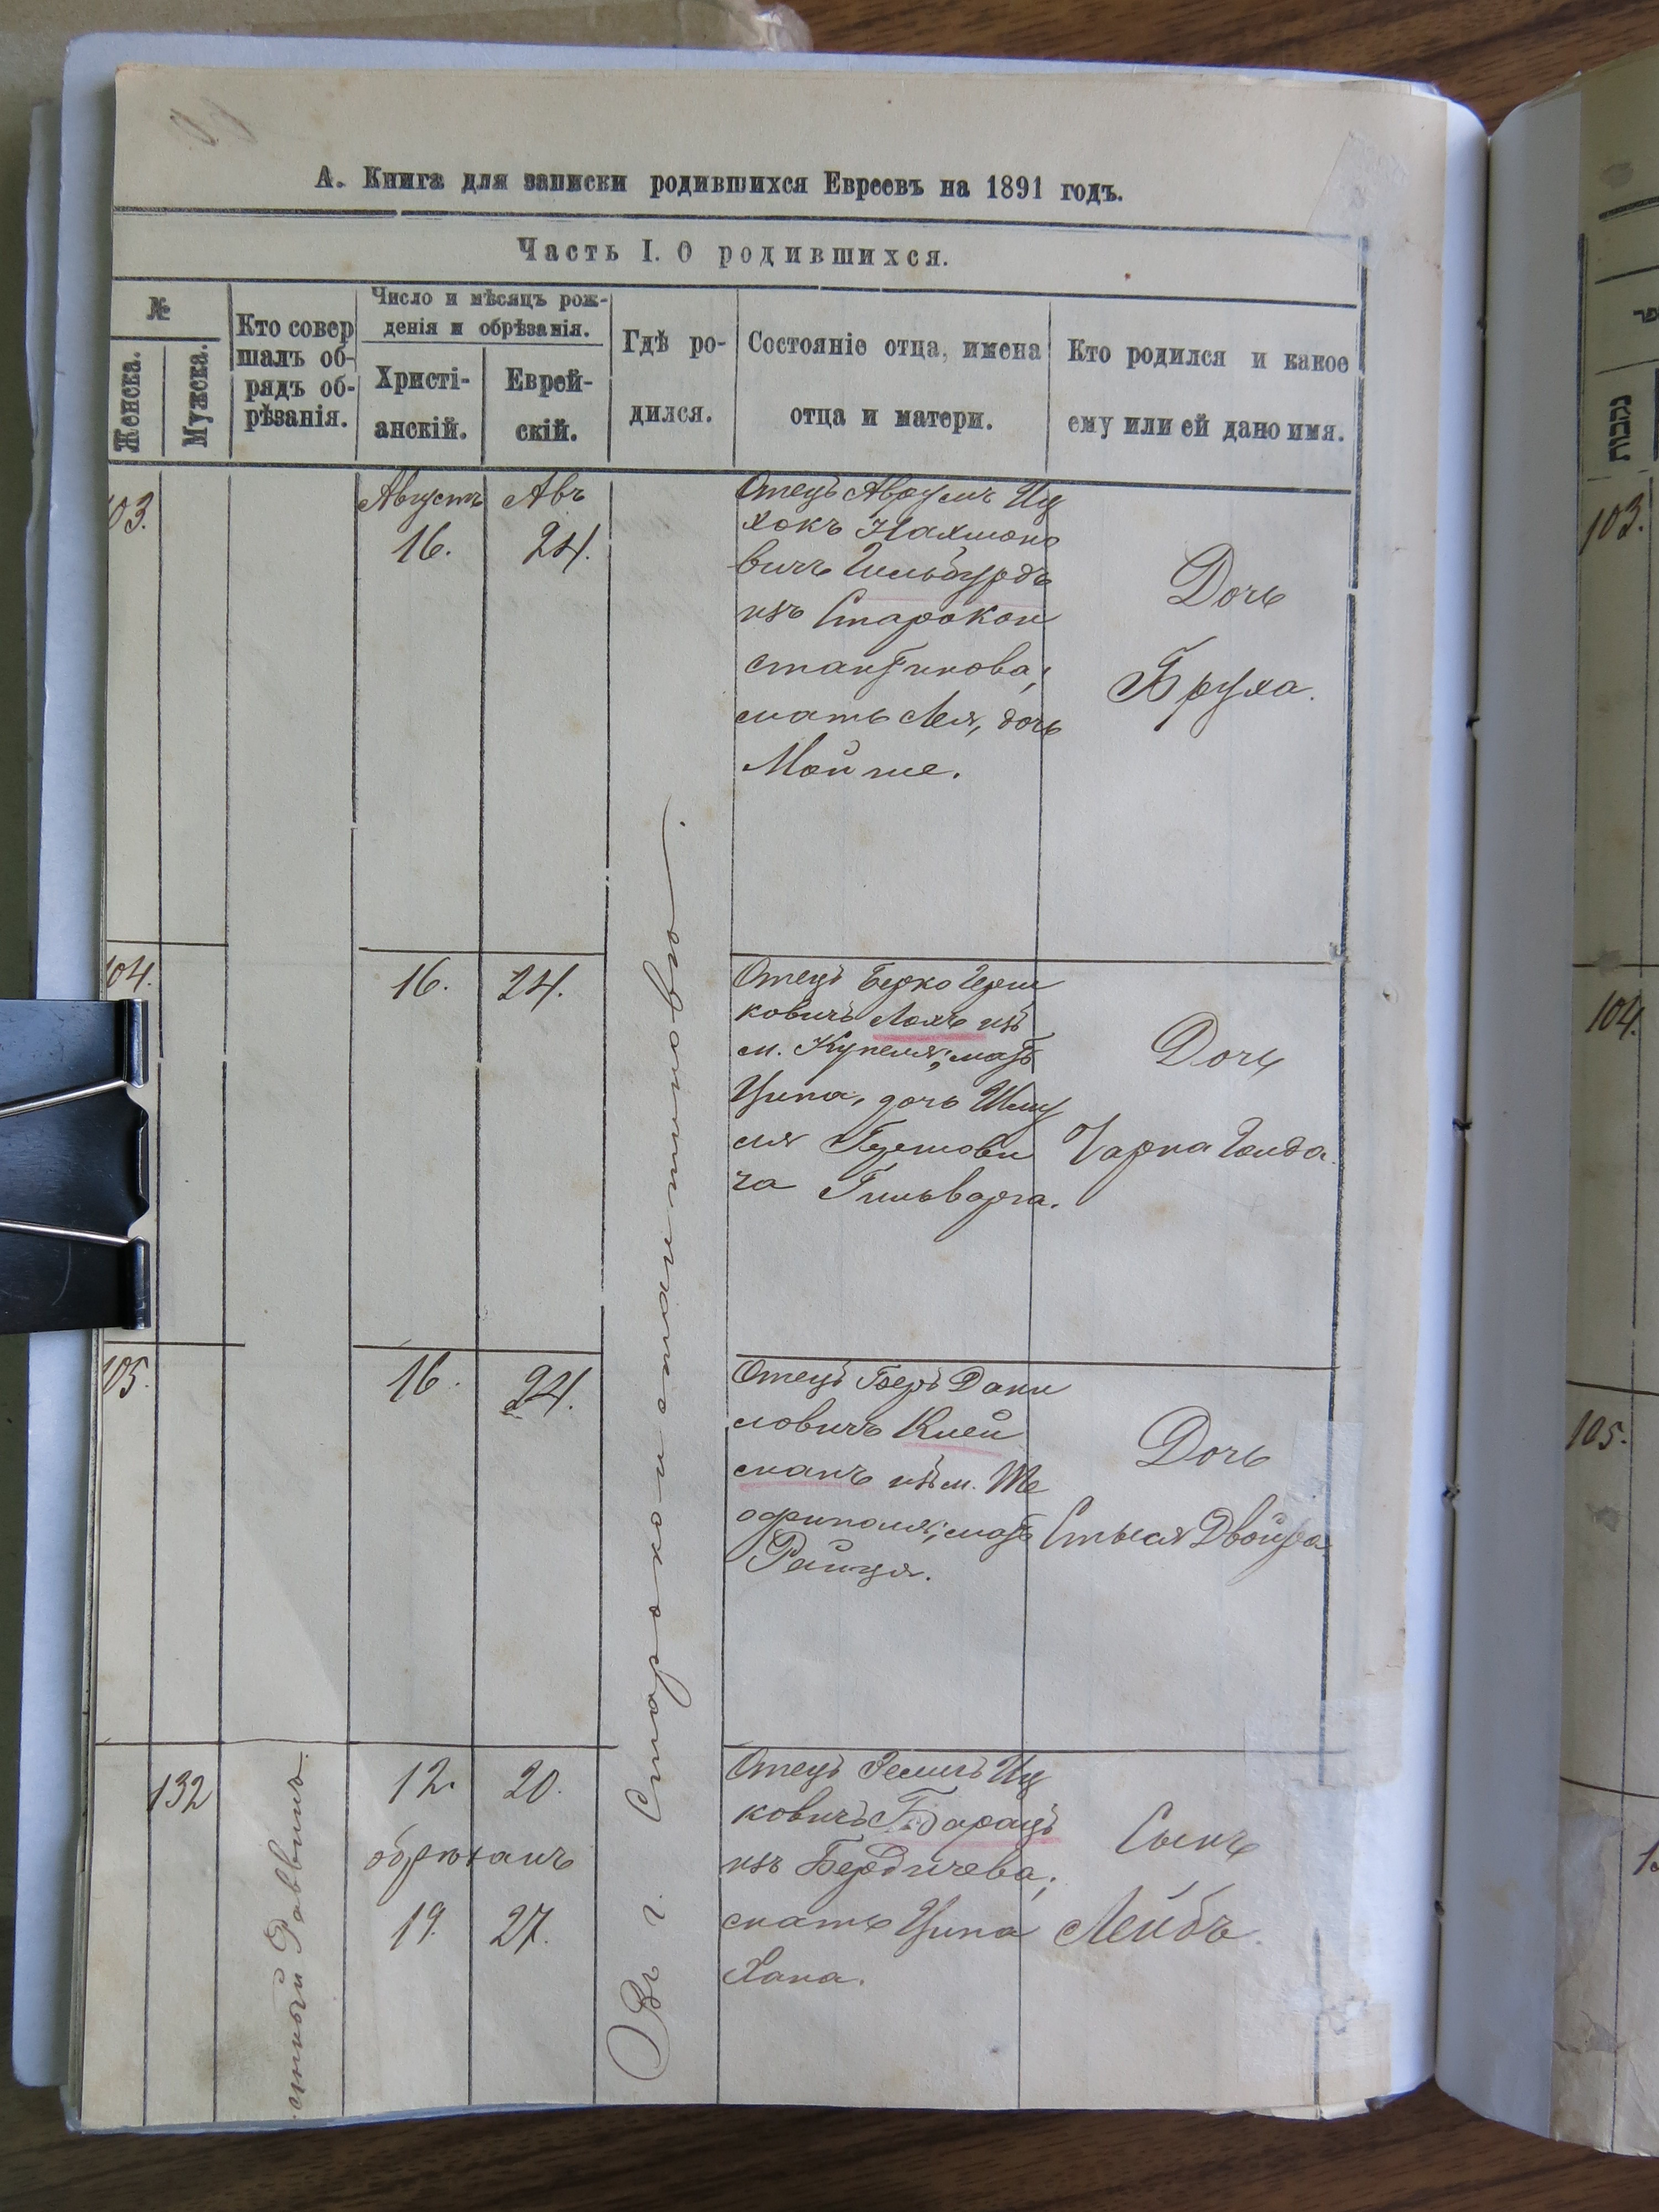 А. Книга для записки родившихся Евреевъ на 1891 годъ.
Часть I. О родившихся.
№
Женска.
Мужска.
Кто совер
шалъ об-
рядъ об-
рѣзанія.
Число и мѣсяцъ рож-
денія и обрѣзанія.
Христі-
анскій.
Еврей-
скій.
Гдѣ ро-
дился.
Состояніе отца, имена
отца и матери.
Кто родился и какое
ему или ей дано имя.
Въ г. Староконстантиновѣ.
103.
Августъ
16.
Авъ
24.
Отецъ Аврумъ Иц
хокъ Нахмоно
вичъ Гильбурдъ
изъ Старокон
стантинова;
мать Лея, дочь
Мойше.
Дочь
Бруха.
104.
16.
24.
Отецъ Берко Герш
ковичъ изъ
м. Купеля; мать
Ципа, дочь Шму
ля
ча Гильварга.
Дочь
Чарна Голда.
105.
16.
24.
Отецъ Беръ Дани
ловичъ Клей
манъ изъ м. Те
офиполя; мать
Рейзя.
Дочь
Стыся Двойра
132
Раввинъ.
12.
20.
обрѣзанъ
19.
27.
Отецъ Зелигъ Иц
ковичъ Барацъ
изъ Бердичева;
мать Ципа
Хана.
Сынъ
Лейбъ.
נקבות
103.
104.
105.